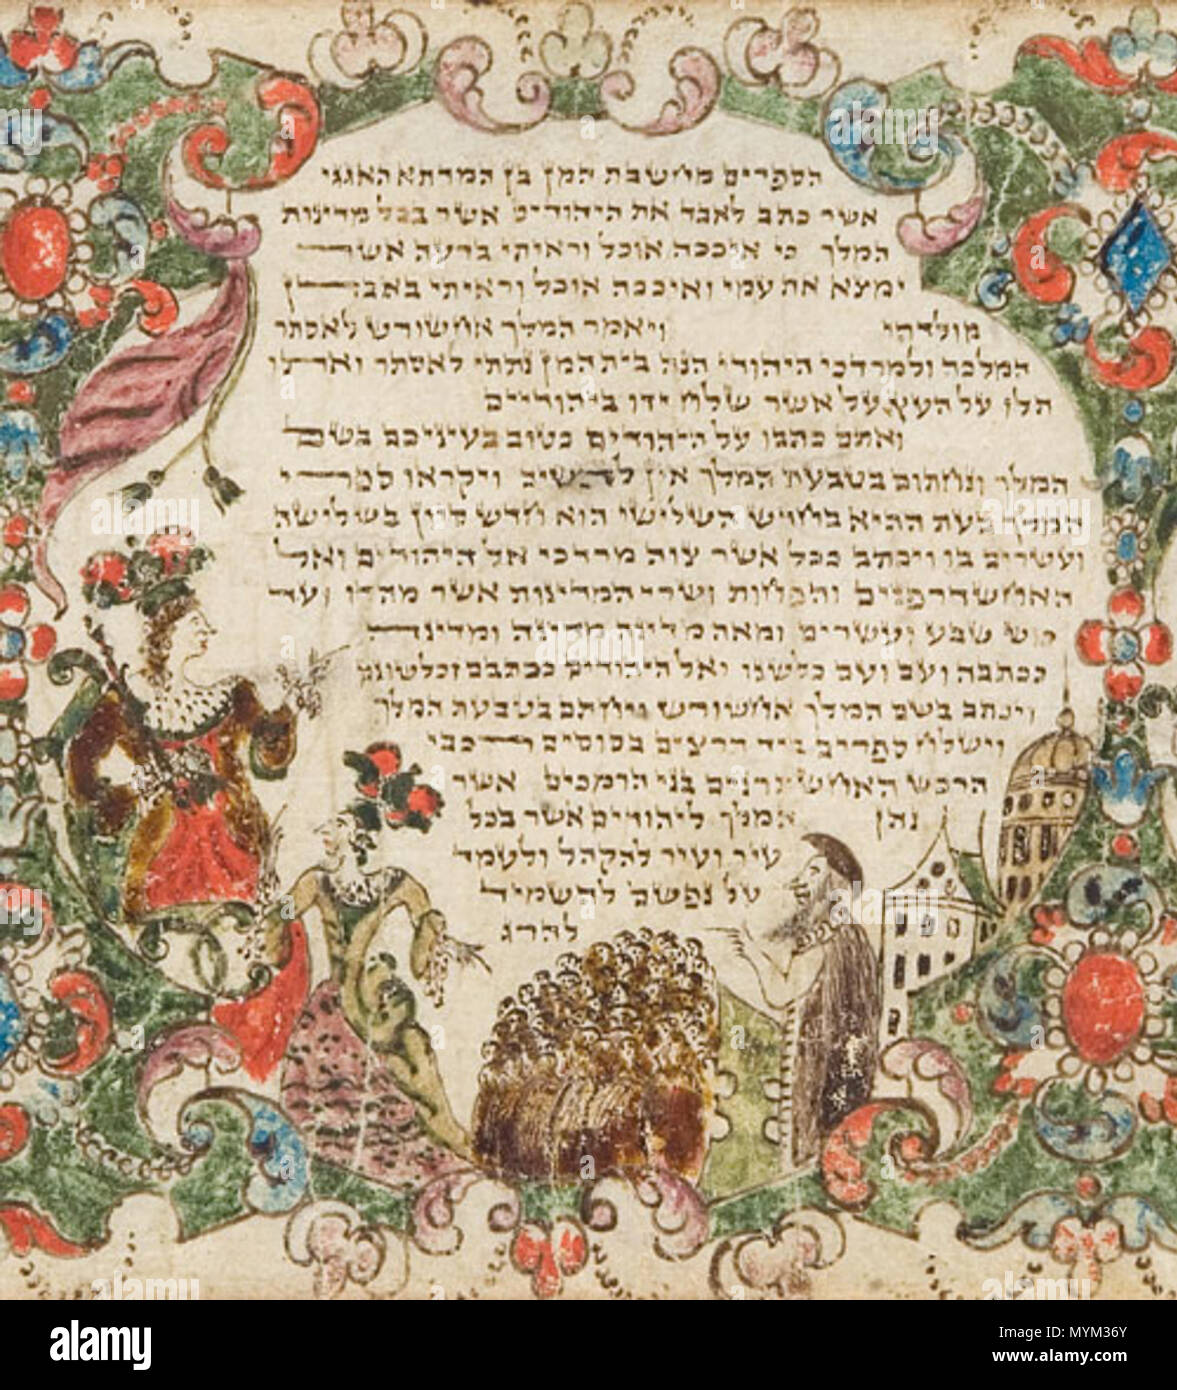 הספרים מחשבת המן בן המדתא האגגי
אשר כתב לאבד את היהודים אשר בכל מדינות
המלך כי איככה אוכל וראיתי ברעה אשר
ימצא את עמי ואיככה אוכל וראיתי באבדן
מולדתי ויאמר המלך אחשורש לאסתר
המלכה ולמרדכי היהודי הנה בית המן נתתי לאסתר ואתו
תלו על העץ על אשר שלח ידו ביהודיים
ואתם כתבו על היהודים כטוב בעיניכם בשם
המלך וחתום בטבעת המלך אין להשיב ויקראו ספרי
המלך בעת ההיא בחדש השלישי הוא חדש סיון בשלישה
ועשרים בו ויכתב ככל אשר צוה מרדכי אל היהודים ואל
האחשדרפנים והפחות ושרי המדינות אשר מהדו ועד
כוש שבע ועשרים ומאה מדינה מדינה ומדינה
ככתבה ועם ועם כלשנו ואל היהודים ככתבם וכלשונם
ויכתב בשם המלך אחשורש ויחתם בטבעת המלך
וישלח ספרים ביד הרצים בסוסים רכבי
הרכש האחשתרנים בני הרמכים אשר
נתן המלך ליהודים אשר בכל
עיר ועיר להקהל ולעמד
על נפשם להשמיד
להרג
alamy
Image ID: MYM36Y
www.alamy.com